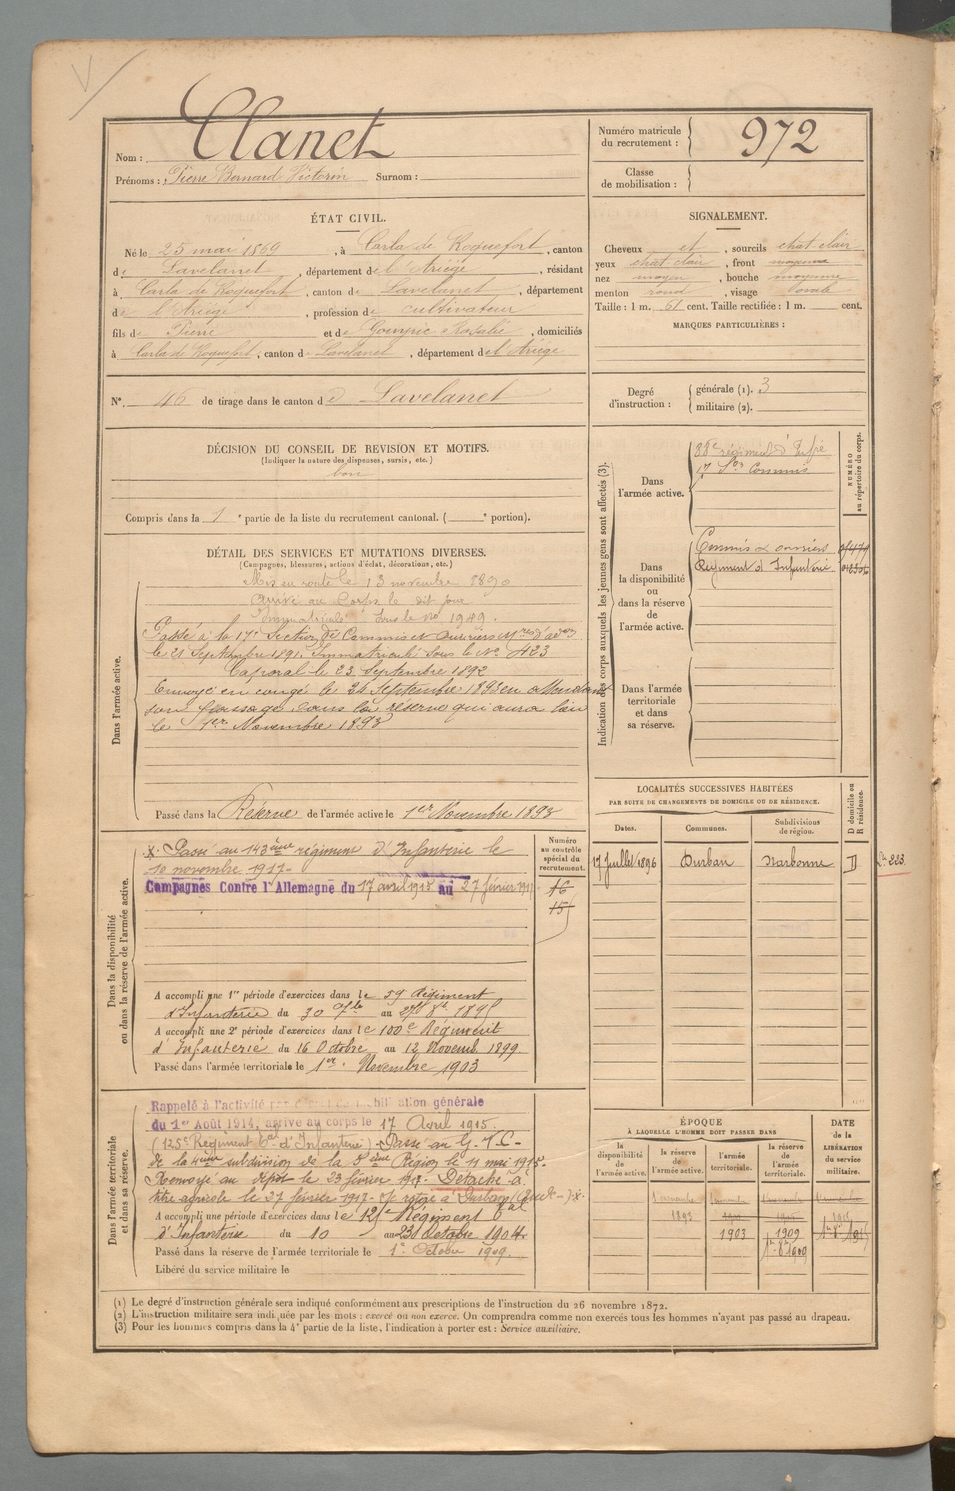 Nom : Clanet
Prénoms : Pierre Bernard Victorin Surnom :
Numéro matricule du recrutement : 972
Classe de mobilisation :
ÉTAT CIVIL.
Né le 25 mai 1869, à Carla de Roquefort, canton
de Lavelanet, département de l'Ariège, résidant
à Carla de Roquefort, canton de Lavelanet, département
de l'Ariège, profession de cultivateur
fils de Pierre et de Gouyric Rosalie, domiciliés
à Carla de Roquefort, canton de Lavelanet, département de l'Ariège
SIGNALEMENT.
Cheveux et, sourcils chat clair
yeux chat clair, front moyenne
nez moyen, bouche moyenne
menton rond, visage ovale
Taille : 1 m. 61 cent. Taille rectifiée : 1 m. cent.
MARQUES PARTICULIÈRES :
N° 46 de tirage dans le canton de Lavelanet
Degré d'instruction : générale (1). 3
militaire (2).
DÉCISION DU CONSEIL DE REVISION ET MOTIFS.
(Indiquer la nature des dispenses, sursis, etc.)
bon
Compris dans la 1e partie de la liste du recrutement cantonal. (e portion).
DÉTAIL DES SERVICES ET MUTATIONS DIVERSES.
(Campagnes, blessures, actions d'éclat, décorations, etc.)
Dans l'armée active.
Mis en route le 13 novembre 1890
arrivé au Corps le dit jour
Immatriculé sous le No 1949.
Passé à la 17e Section de Commis et Ouvriers
le 21 Septembre 1891. Immatriculé sous le No 423
Caporal le 23 Septembre 1892
Envoyé en congé le 24 Septembre 1893 en attendant
son passage dans la réserve qui aura lieu
le 1er Novembre 1893
Passé dans la Réserve de l'armée active le 1er Novembre 1893
Indication des corps auxquels les jeunes gens sont affectés (3).
NUMÉRO au répertoire du corps.
Dans l'armée active.
88e régiment d'Infie
17 Son Commis
Dans la disponibilité ou dans la réserve de l'armée active.
Commis & ouvriers
Régiment d'Infanterie
Dans l'armée territoriale et dans sa réserve.
LOCALITÉS SUCCESSIVES HABITÉES
PAR SUITE DE CHANGEMENTS DE DOMICILE OU DE RÉSIDENCE.
Dates. Communes. Subdivisions de région. D domicile ou R résidence.
17 Juillet 1896 Durban Narbonne D
223
Dans la disponibilité ou dans la réserve de l'armée active.
Numéro au contrôle spécial du recrutement.
x. Passé au 143ème régiment d'Infanterie le
10 novembre 1917.
Campagnes Contre l'Allemagne du 17 avril 1915 au 27 février 1917
16
15
A accompli une 1re période d'exercices dans le 59 Régiment
d'Infanterie du 30 7bre au 27 8bre 1895
A accompli une 2e période d'exercices dans le 100e Régiment
d'Infanterie du 16 Octobre au 12 Novemb. 1899
Passé dans l'armée territoriale le 1er Novembre 1903
Dans l'armée territoriale et dans sa réserve.
Rappelé à l'activité par décret de mobilisation générale
du 1er Août 1914, arrivé au corps le 17 Avril 1915.
(125e Régiment tal d'Infanterie). Passé au G.V.C.
de la 4ème subdivision de la 5ème Région le 11 mai 1915.
Renvoyé au dépôt le 23 février 1917. Détaché à
titre agricole le 27 février 1917. Se retire à Durban (Aude). x.
A accompli une période d'exercices dans le 125e Régiment tal
d'Infanterie du 10 au 23 Octobre 1904
Passé dans la réserve de l'armée territoriale le 1er Octobre 1909.
Libéré du service militaire le
ÉPOQUE
À LAQUELLE L'HOMME DOIT PASSER DANS
la disponibilité de l'armée active. la réserve de l'armée active. l'armée territoriale. la réserve de l'armée territoriale.
DATE de la LIBÉRATION du service militaire.
1893 1903 1909
(1) Le degré d'instruction générale sera indiqué conformément aux prescriptions de l'instruction du 26 novembre 1872.
(2) L'instruction militaire sera indiquée par les mots : exercé ou non exercé. On comprendra comme non exercés tous les hommes n'ayant pas passé au drapeau.
(3) Pour les hommes compris dans la 4e partie de la liste, l'indication à porter est : Service auxiliaire.